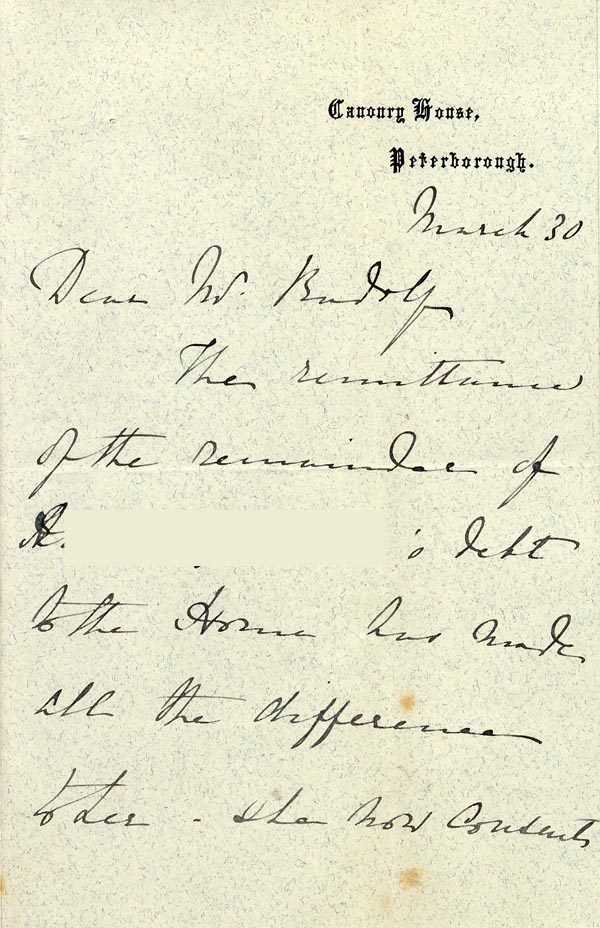 Canonry House,
Peterborough.
March 30
Dear Mr. Rudolf
The remittance
of the remainder of
A. 's debt
to the Home has made
all the difference
to her - she now consents